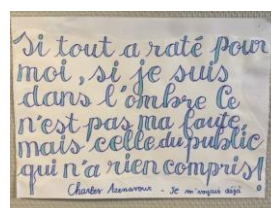 Si tout a raté pour
moi, si je suis
dans l'ombre Ce
n'est pas ma faute
mais celle du public
qui n'a rien compris!
Charles Aznavour - Je m'voyais déjà